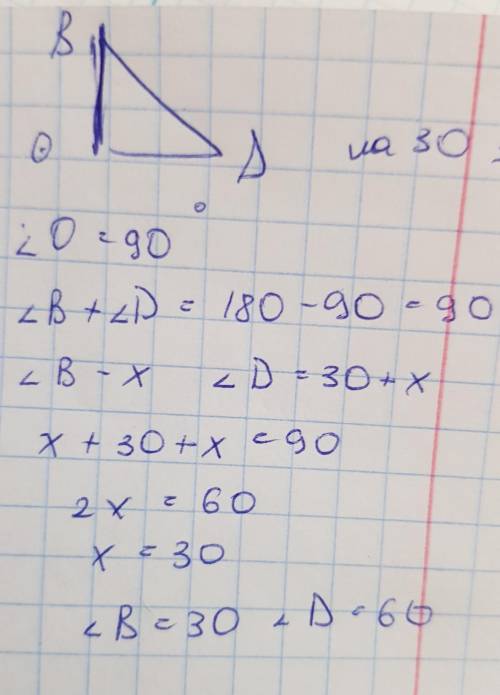 B
O Δ на 30
∠O = 90
∠B + ∠D = 180 - 90 = 90
∠B - x ∠D = 30 + x
x + 30 + x = 90
2x = 60
x = 30
∠B = 30 ∠D = 60